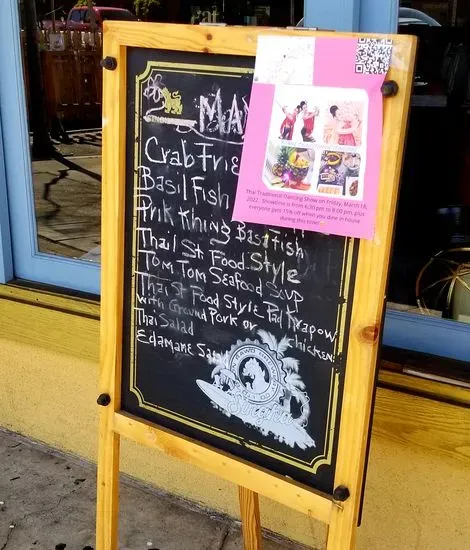 MA
Crab Frie
Basil Fish
Prik Khing Basa Fish
Thai St Food Style
Tom Tom Seafood Soup
Thai St Food Style Pad Krapow
with Ground Pork or Chicken
Thai Salad
Edamame Sa
Thai Traditional Dancing Show on Friday, March 18,
2022. Showtime is from 6:30 pm to 9:00 pm, plus
Everyone gets 15% off when you dine in house
during this time!